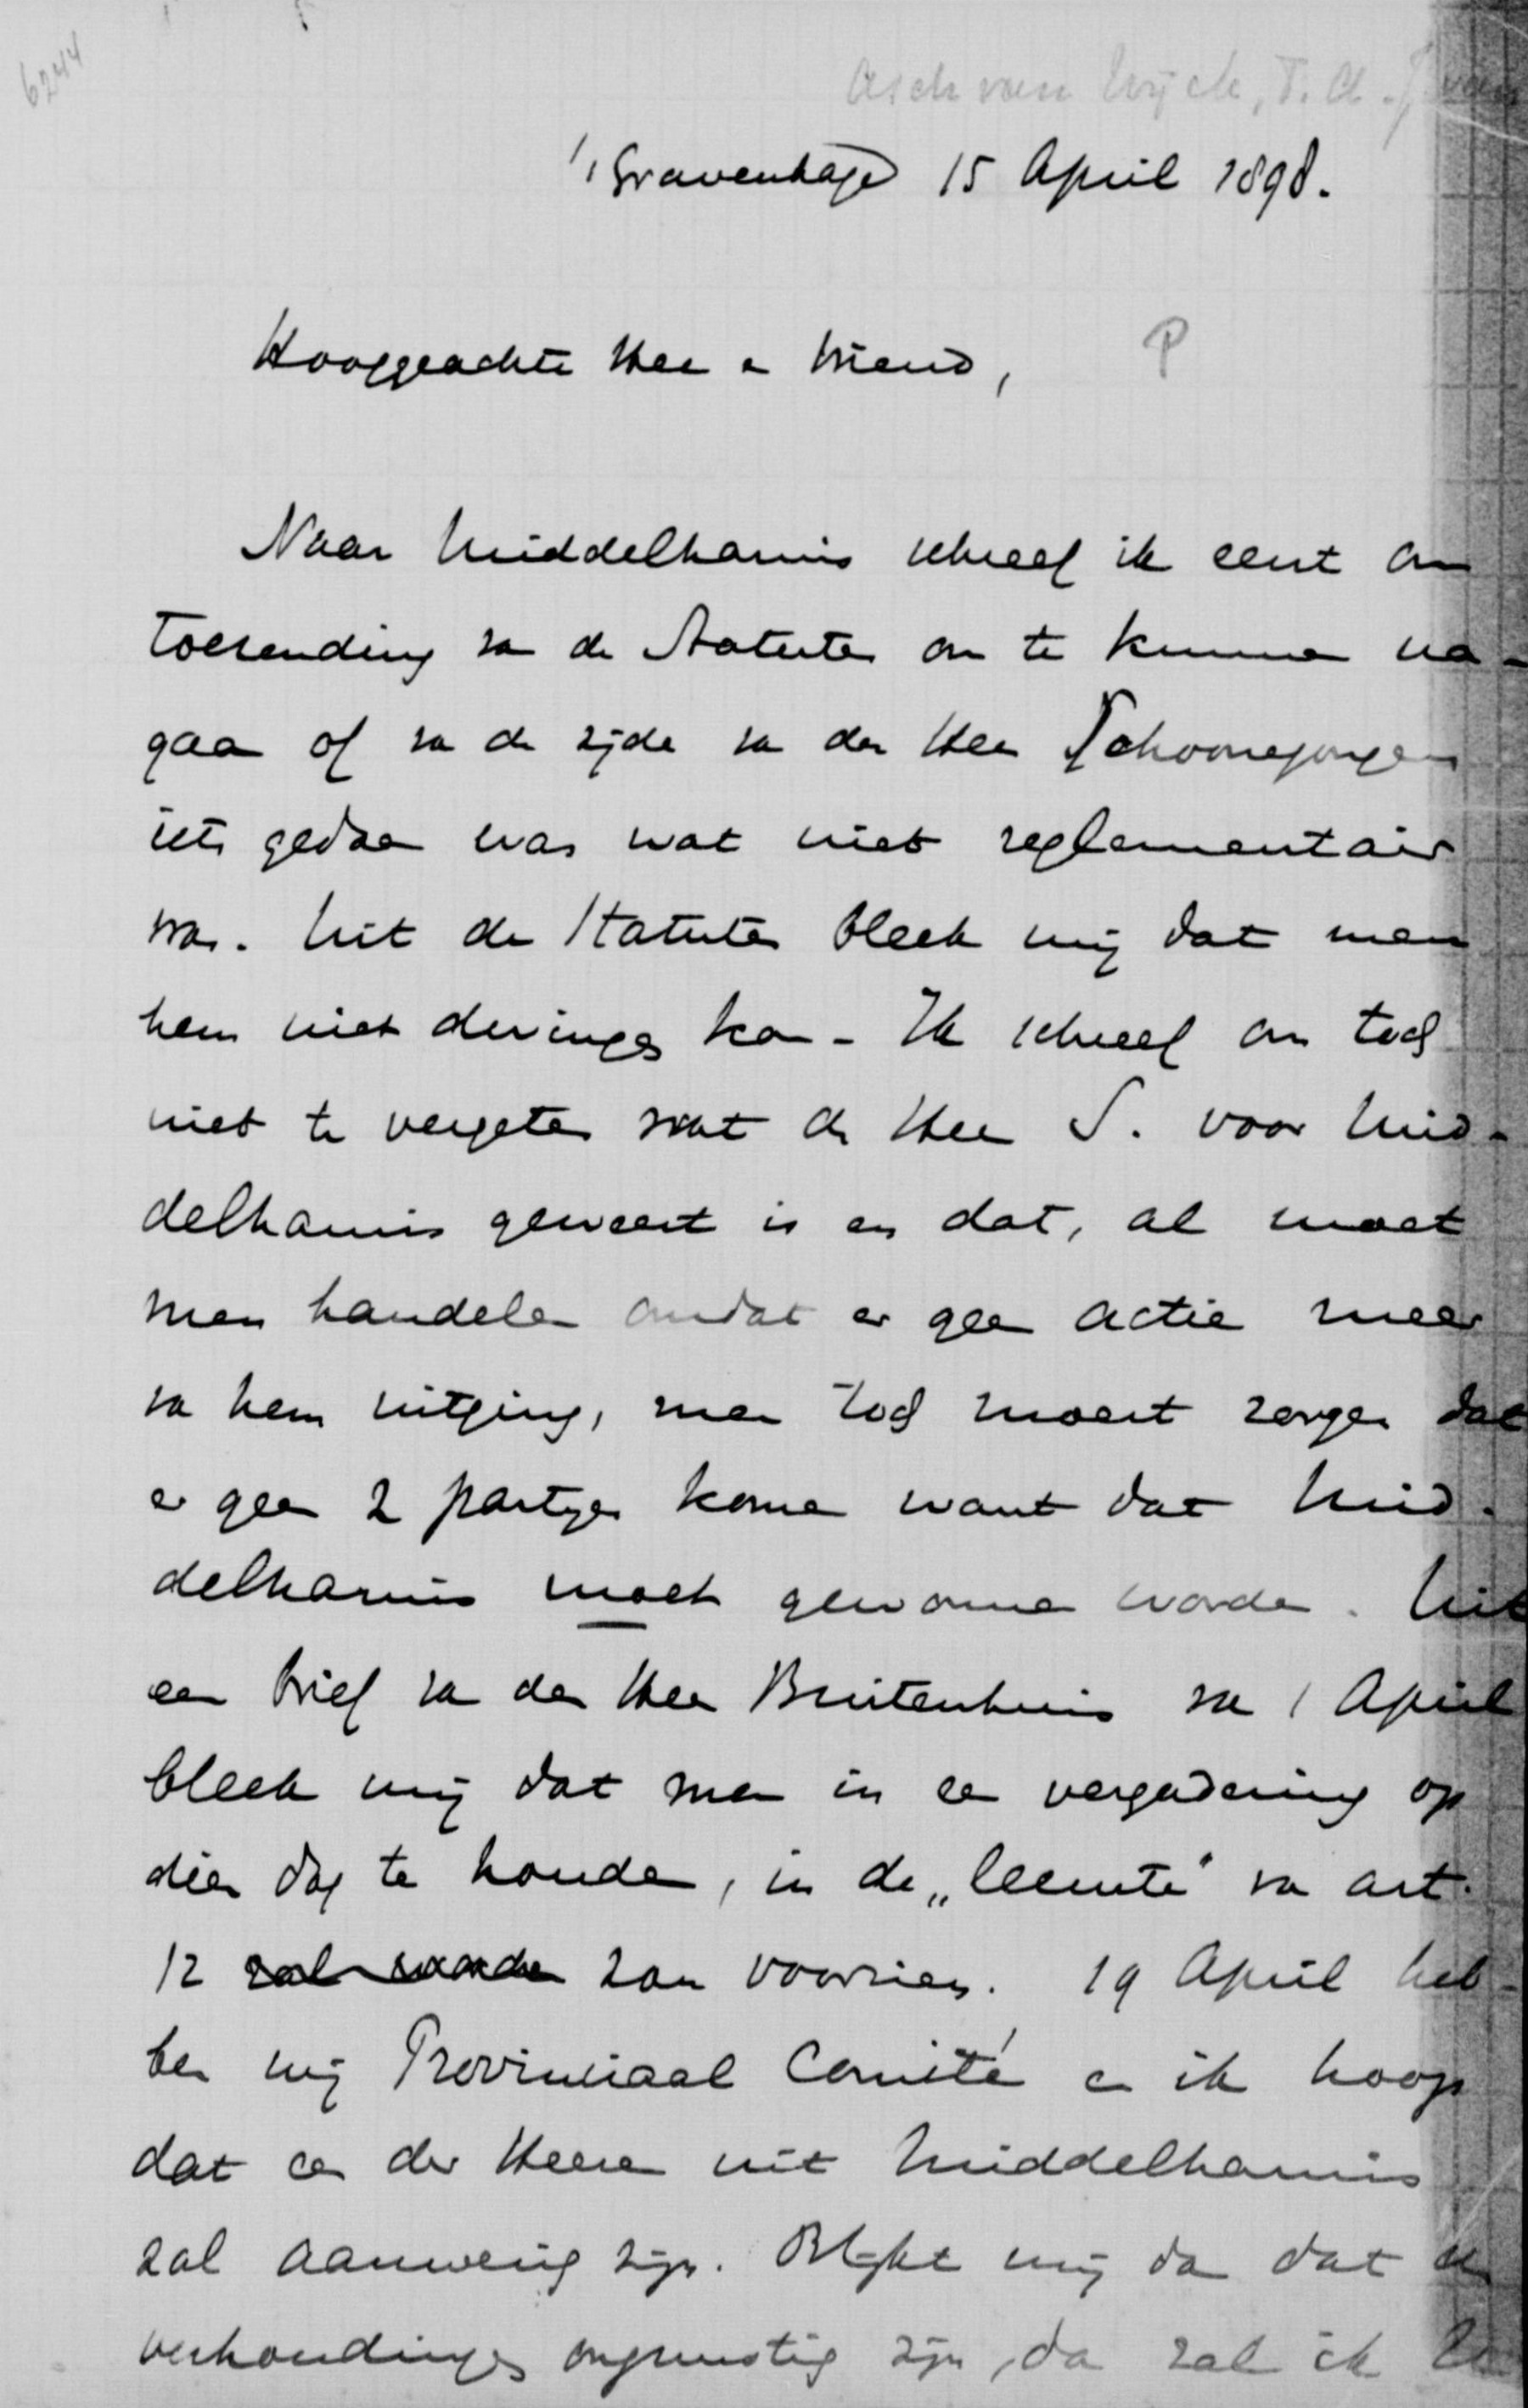 6244
Asch van Wijck, T. A. J. van
's Gravenhage 15 April 1898.
Hooggeachte Heer en Vriend,
P
Naar Middelharnis schreef ik eerst om
toezending van de Statuten om te kunnen na-
gaan of van de zijde van den Heer Schoonejongen
iets gedaan was wat niet reglementair
was. Uit de Statuten bleek mij dat men
hem niet dwingen kon - Ik schreef om toch
niet te vergeten wat de Heer S. voor Mid-
delharnis geweest is en dat, al moet
men handelen omdat er geen actie meer
van hem uitging, men toch moest zorgen dat
er geen 2 partijen komen want dat Mid-
delharnis moet gewonnen worden. Uit
een brief van den Heer Buitenhuis van 1 April
bleek mij dat men in een vergadering op
dien dag te houden, in de „leemte" van art.
12 zal worden zou voorzien. 19 April heb-
ben wij Provinciaal Comité en ik hoop
dat een der Heeren uit Middelharnis
zal aanwezig zijn. Blijkt mij dan dat de
verhoudingen ongunstig zijn, dan zal ik U